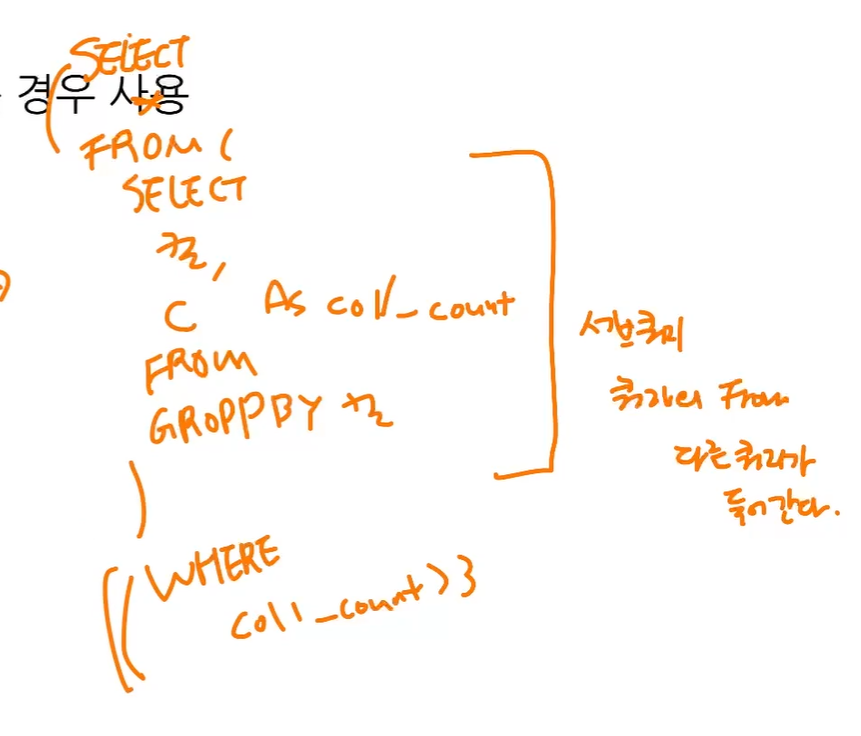 SELECT
경우 사용
*
FROM (
SELECT
컬,
C AS col1_count
FROM
GROPPBY 컬
)
WHERE
col1_count > 3
서브쿼리
쿼리의 From
다른 쿼리가
들어간다.